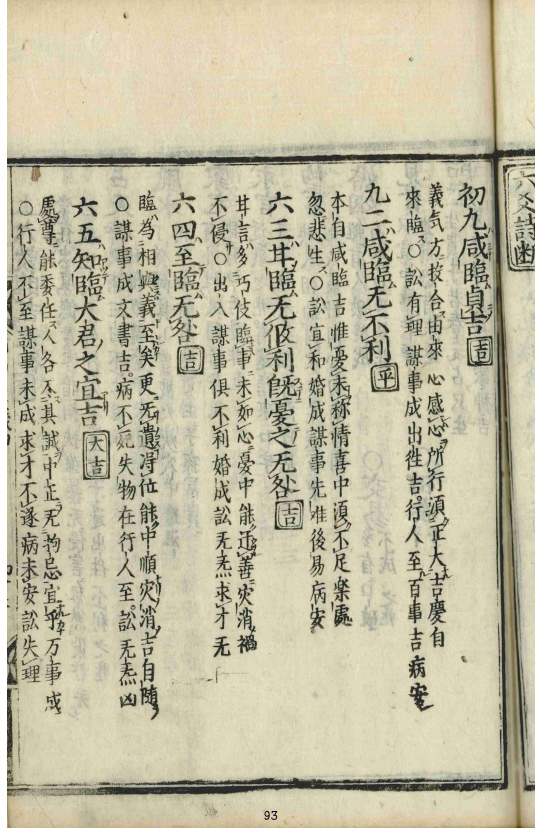 六爻詩断
初九咸臨貞吉 吉
義気方投合由來心感心所行須正大吉慶自
來臨○訟有理謀事成出徃吉行人至百事吉病安
九二咸臨无不利 平
本自咸臨吉惟憂未称情喜中須不足楽處
忽悲生○訟宜和婚成謀事先难後易病安
六三甘臨无攸利既憂之无咎 吉
甘言多巧伎臨事未如心憂中能迁善灾消禍
不侵○出入謀事俱不利婚成訟无炁求才无
六四至臨无咎 吉
臨為相與義至矣更无遺得位能中順灾消吉自随
○謀事成文書吉病不危失物在行人至訟无炁凶
六五知臨大君之宜吉 大吉
處尊能委任人各尽其誠中正无拘忌宜乎万事成
○行人不至謀事未成求才不遂病未安訟失理
93